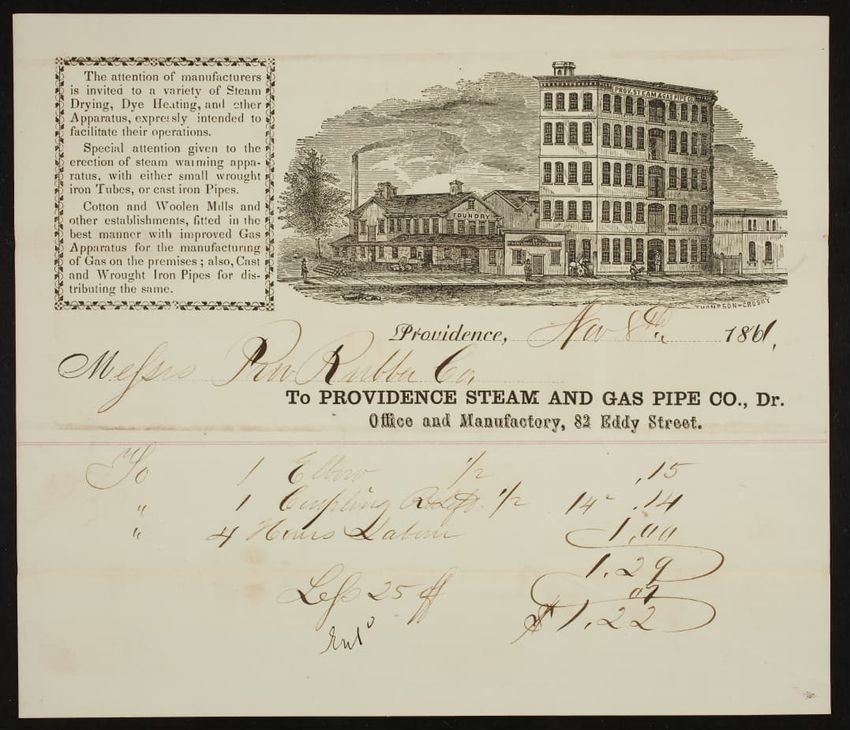 The attention of manufacturers
is invited to a variety of Steam
Drying, Dye Heating, and other
Apparatus, expressly intended to
facilitate their operations.
Special attention given to the
erection of steam warming appa-
ratus, with either small wrought
iron Tubes, or cast iron Pipes.
Cotton and Woolen Mills and
other establishments, fitted in the
best manner with improved Gas
Apparatus for the manufacturing
of Gas on the premises; also, Cast
and Wrought Iron Pipes for dis-
tributing the same.
PROV. STEAM & GAS PIPE CO.
FOUNDRY
THOMPSON-CROSBY
Providence, Nov 8th 1861,
Messrs Prov Rubber Co,
To PROVIDENCE STEAM AND GAS PIPE CO., Dr.
Office and Manufactory, 82 Eddy Street.
To 1 Elbow 1/2 .15
" 1 Coupling R&L 1/2 14 .14
" 4 Hours Labour 1.00
1.29
Less 25 off .07
$1.22